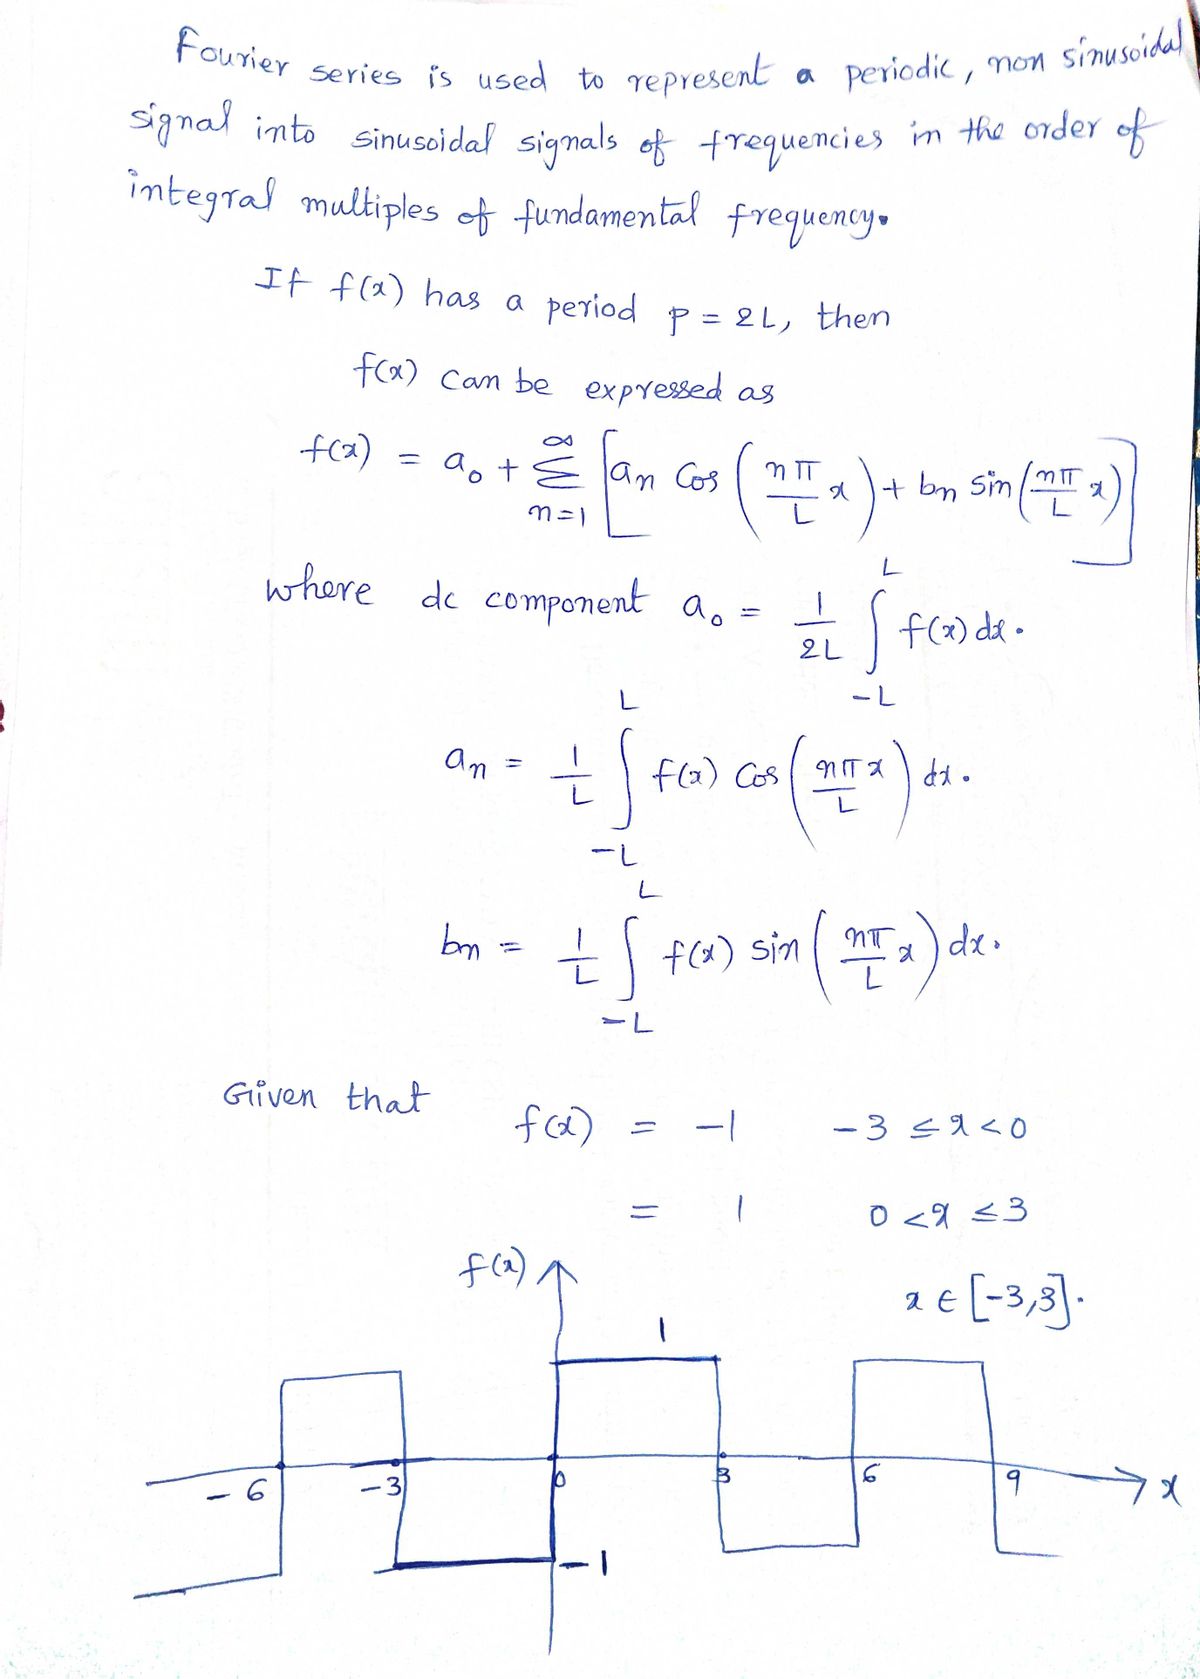 Fourier series is used to represent a periodic, non sinusoidal
signal into sinusoidal signals of frequencies in the order of
integral multiples of fundamental frequency.
If f(x) has a period p = 2L, then
f(x) can be expressed as
f(x) = a₀ + ∑_{n=1}^{∞} [an cos (nπ/L x) + bn sin (nπ/L x)]
where dc component a₀ = 1/2L ∫_{-L}^{L} f(x) dx.
an = 1/L ∫_{-L}^{L} f(x) cos (nπx/L) dx.
bn = 1/L ∫_{-L}^{L} f(x) sin (nπ/L x) dx.
Given that
f(x) = -1 -3 ≤ x < 0
= 1 0 < x ≤ 3
x ∈ [-3,3].
f(x)
1
-6 -3 0 3 6 9 x
-1